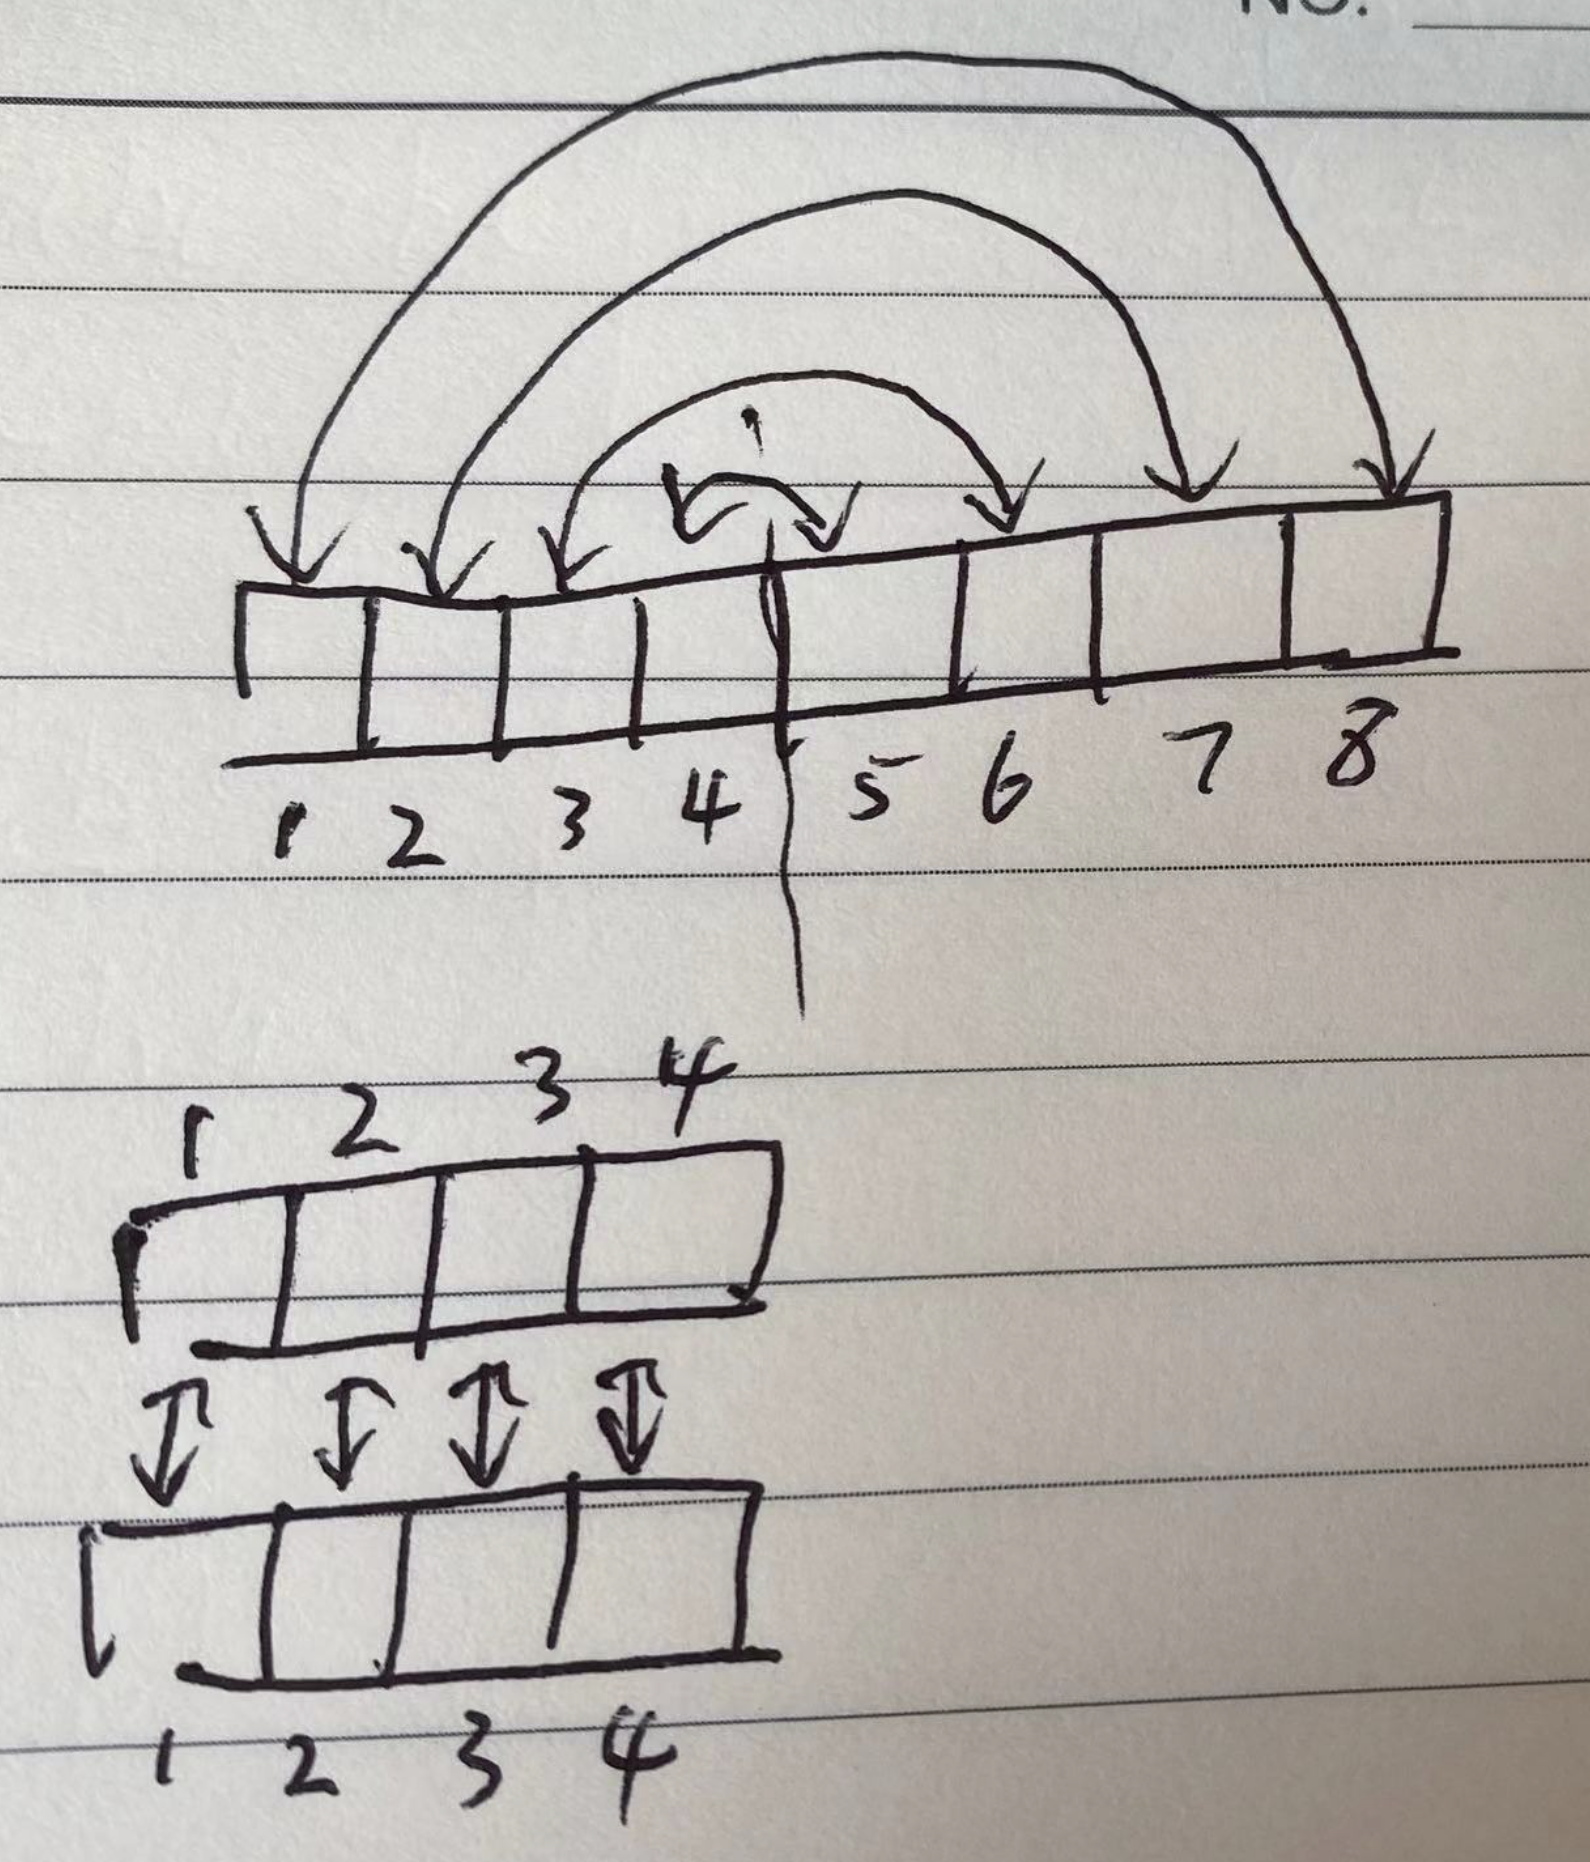 NO.
1 2 3 4 5 6 7 8
1 2 3 4
1 2 3 4